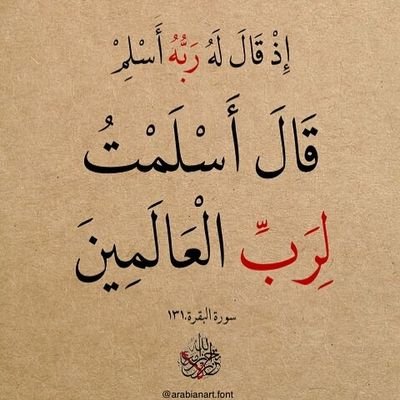 إِذْ قَالَ لَهُ رَبُّهُ أَسْلِمْ
قَالَ أَسْلَمْتُ
لِرَبِّ الْعَالَمِينَ
سورة البقرة، ١٣١
@arabianart.font